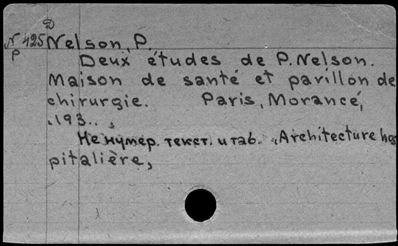 D
N 425 Nelson, P.
P
Deux études de P. Nelson.
Maison de santé et pavillon de
chirurgie. Paris, Morancé,
.193..,
Не нумер. текст. и таб. "Architecture hos
pitalière,